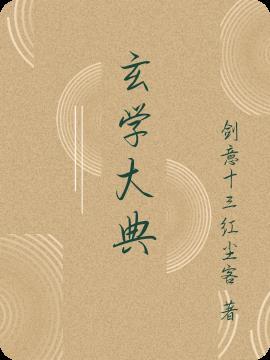 玄学大典
剑意十三红尘客 著